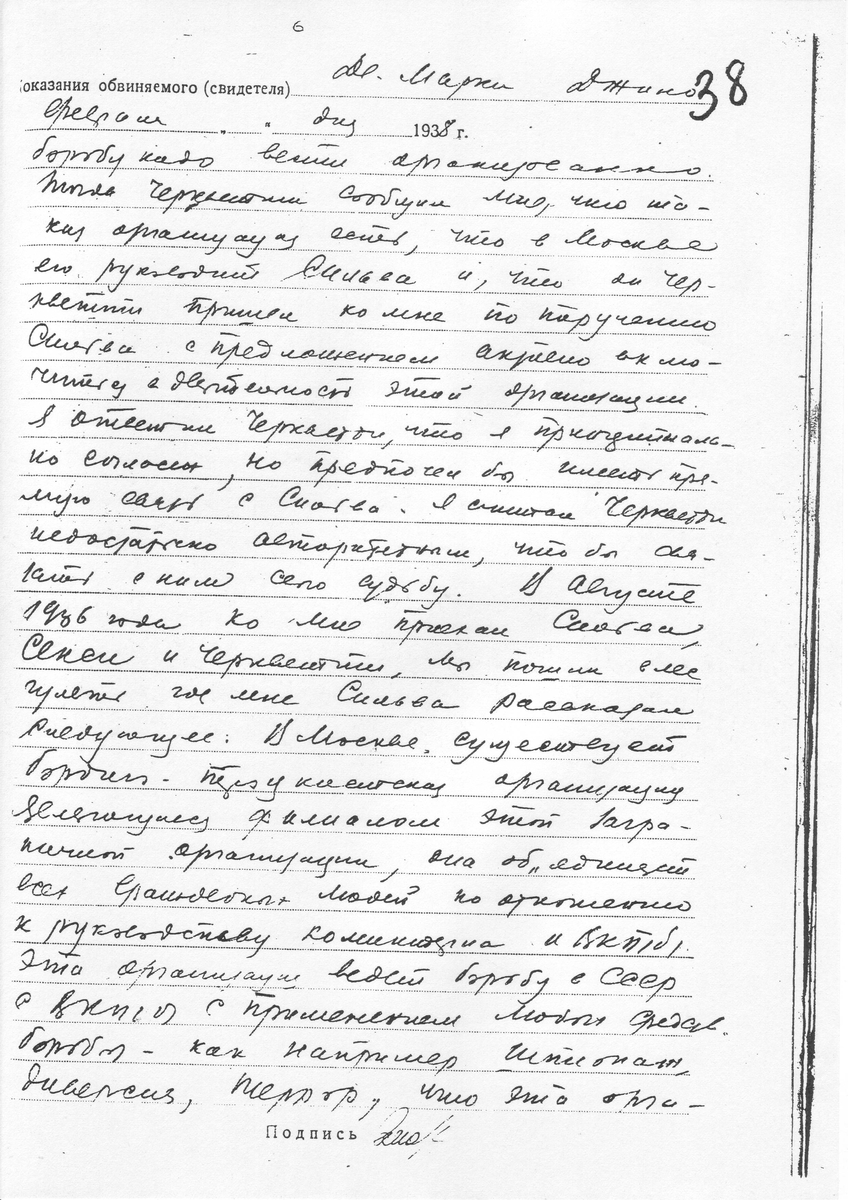 6
38
оказания обвиняемого (свидетеля) Де Марки Джино
февраля „ “ дня 1938 г.
борьбу надо вести организованно.
Тогда Черкветти сообщил мне, что та-
кая организация есть, что в Москве
его руководит Сильва и, что он Чер-
кветти пришел ко мне по поручению
Сильва с предложением активно вклю-
читься в деятельность этой организации.
Я ответил Черкветти, что я принципиаль-
но согласен, но предпочел бы иметь пря-
мую связь с Сильва. Я считал Черкветти
недостаточно авторитетным, что бы свя-
зать с ним свою судьбу. В Августе
1936 года ко мне приехал Сильва,
и Черкветти, мы пошли в лес
гулять где мне Сильва рассказал
следующее: В Москве существует
бордиго-троцкистская организация
являющаяся филиалом этой загра-
ничной организации, она об„единяет
всех враждебных людей по отношению
к руководству коминтерна и ВКП(б).
Эта организация ведет борьбу в СССР
с ВКП(б) с применением любых средств
борьбы - как например шпионаж,
диверсия, террор, что эта орга-
Подпись